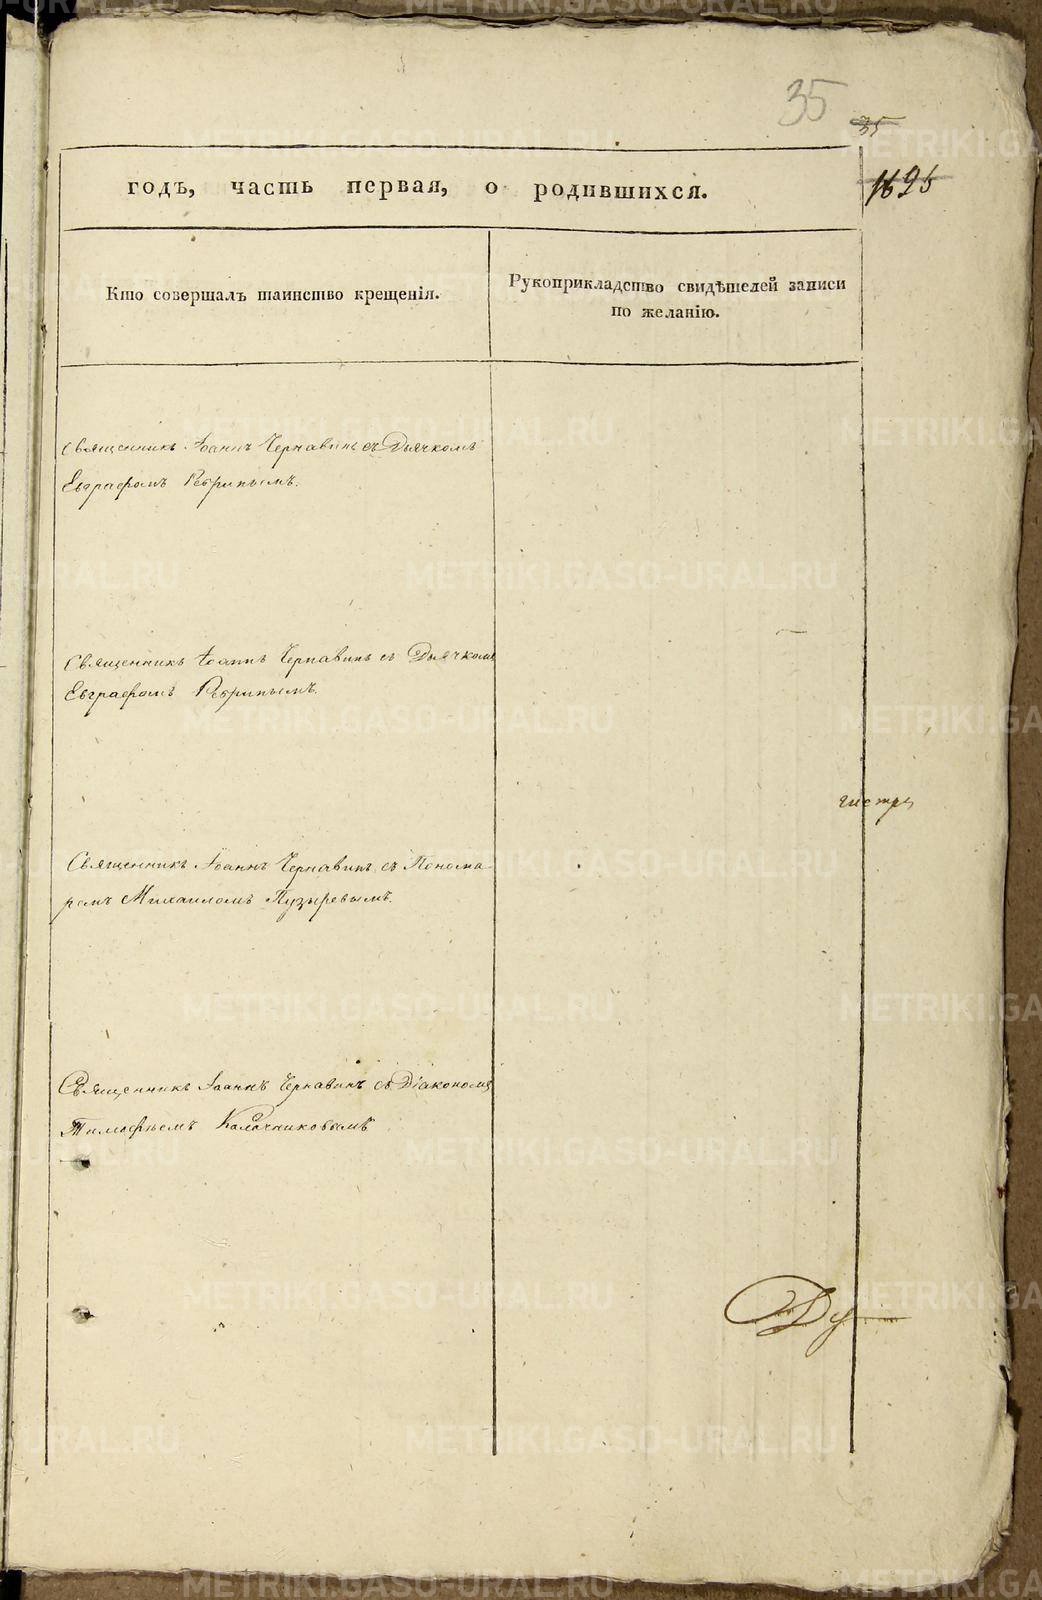 35
35
1695
годъ, часть первая, о родившихся.
Кто совершалъ таинство крещенія.
Рукоприкладство свидѣтелей записи
по желанію.
Священникъ Іоаннъ Чернавинъ съ Дьячкомъ
Евграфомъ
Священникъ Іоаннъ Чернавинъ съ Дьячкомъ
Евграфомъ
Священникъ Іоаннъ Чернавинъ съ Понома-
ремъ Михаиломъ Пузыревымъ.
Священникъ Іоаннъ Чернавинъ съ Діакономъ
Тимофѣемъ Калачниковымъ
METRIKI.GASO-URAL.RU